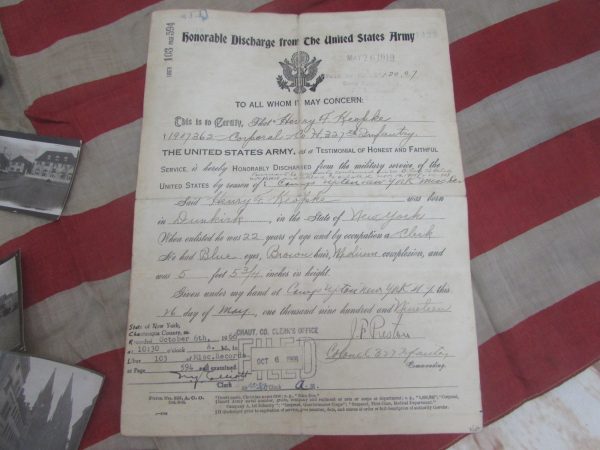 LIBER 103 PAGE 594
Honorable Discharge from The United States Army
MAY 26 1919
TO ALL WHOM IT MAY CONCERN:
This is to Certify, That Henry F. Koepke
1907362 Corporal Co H. 327th Infantry
THE UNITED STATES ARMY, as a TESTIMONIAL OF HONEST AND FAITHFUL
SERVICE, is hereby HONORABLY DISCHARGED from the military service of the
UNITED STATES by reason of Camp Upton New York
Said Henry F. Koepke was born
in Dunkirk, in the State of New York
When enlisted he was 22 years of age and by occupation a Clerk
He had Blue eyes, Brown hair, Medium complexion, and
was 5 feet 5 3/4 inches in height.
Given under my hand at Camp Upton New York N.Y. this
26 day of May, one thousand nine hundred and Nineteen
J. F. Preston
Colonel 327 Infantry
Commanding.
State of New York,
Chautauqua County, ss.
Recorded October 6th, 19
at 10:30 o'clock A. M. in
Liber 103 of Misc. Records
at Page 594 and examined.
Clerk
CHAUT. CO. CLERK'S OFFICE
FILED
OCT 6
A M.
Form No. 525, A. G. O.